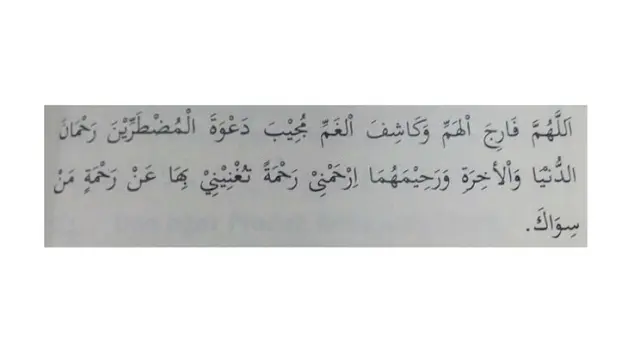 اَللَّهُمَّ فَارِجَ اْلهَمِّ وَكَاشِفَ اْلغَمِّ مُجِيْبَ دَعْوَةَ الْمُضْطَرِّيْنَ رَحْمَانَ
الدُّنْيَا وَاْلأخِرَةِ وَرَحِيْمَهُمَا اِرْحَمْنِىْ رَحْمَةً تُغْنِيْنِيْ بِهَا عَنْ رَحْمَةٍ مَنْ
سِوَاكَ.